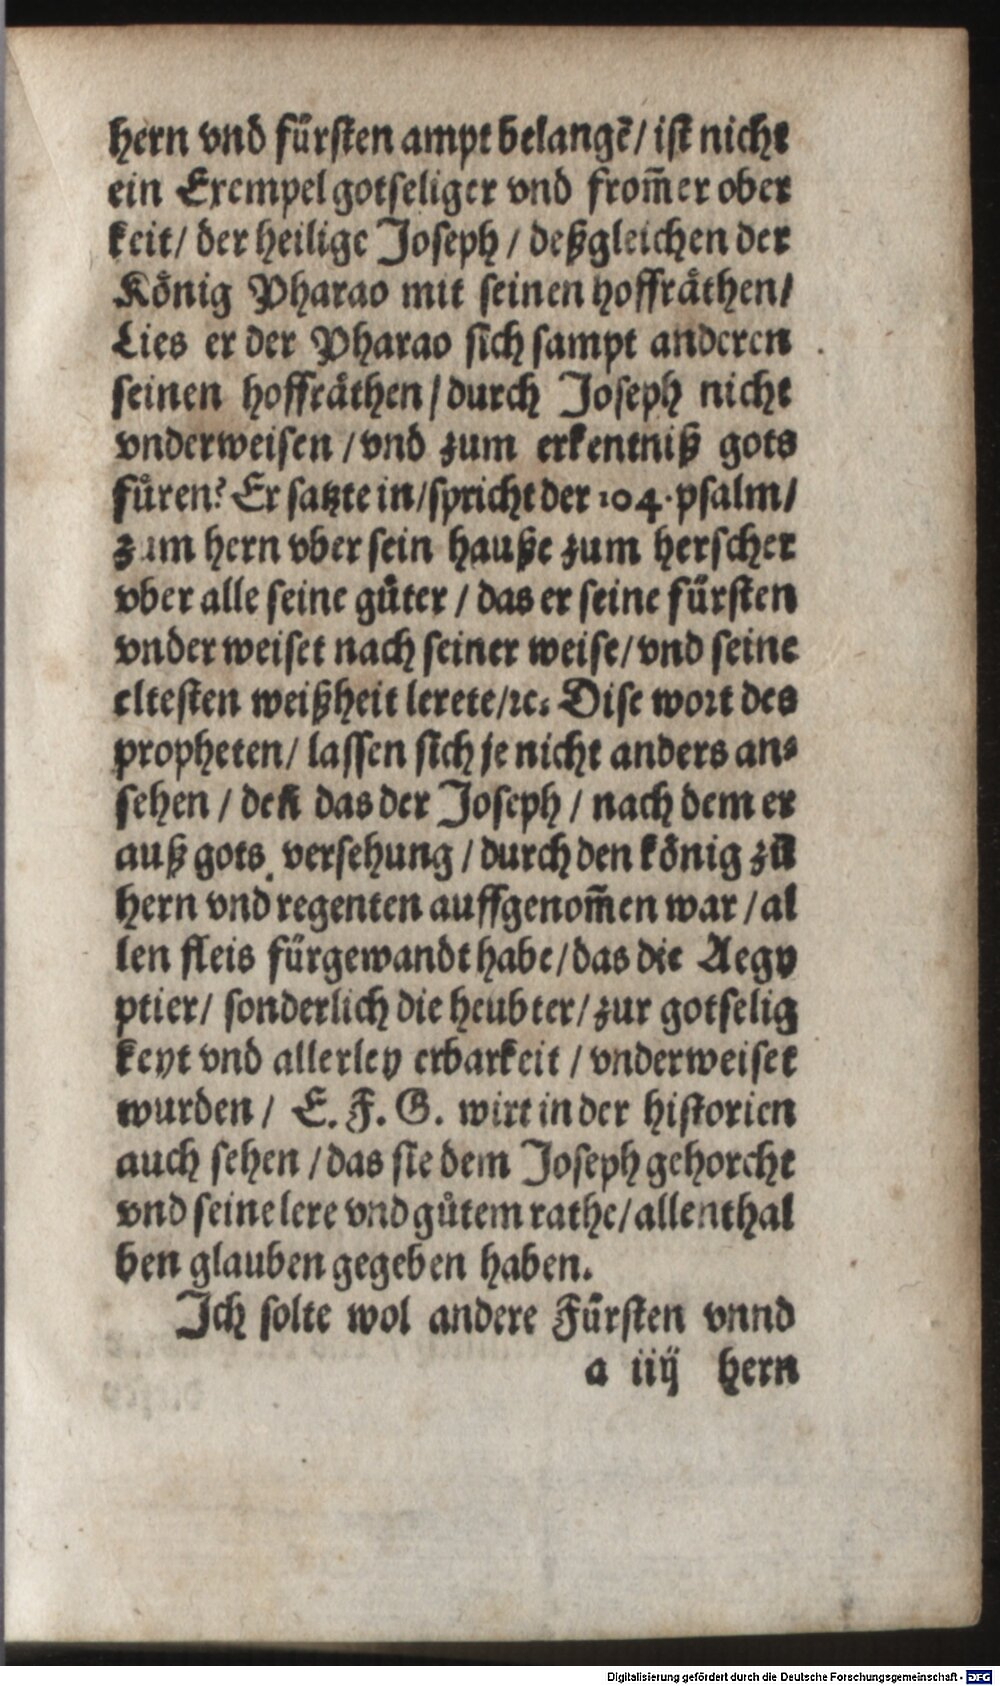 hern vnd fürsten ampt belangẽ/ ist nicht
ein Exempel gotseliger vnd from̃er ober
keit/ der heilige Joseph / deßgleichen der
König Pharao mit seinen hoffräthen/
Lies er der Pharao sich sampt anderen
seinen hoffräthen/ durch Joseph nicht
vnderweisen / vnd zum erkentniß gots
füren? Er satzte in/ spricht der 104. psalm/
zum hern vber sein hauße zum herscher
vber alle seine güter / das er seine fürsten
vnder weiset nach seiner weise/ vnd seine
eltesten weißheit lerete/ꝛc. Dise wort des
propheten/ lassen sich je nicht anders an-
sehen / deñ das der Joseph / nach dem er
auß gots versehung / durch den könig zů
hern vnd regenten auffgenom̃en war / al
len fleis fürgewandt habe/ das die Aegy
ptier/ sonderlich die heubter/ zur gotselig
keyt vnd allerley erbarkeit / vnderweiset
wurden / E. F. G. wirt in der historien
auch sehen / das sie dem Joseph gehorcht
vnd seine lere vnd gůtem rathe/ allenthal
ben glauben gegeben haben.
Ich solte wol andere Fürsten vnnd
a iiij hern
Digitalisierung gefördert durch die Deutsche Forschungsgemeinschaft - DFG